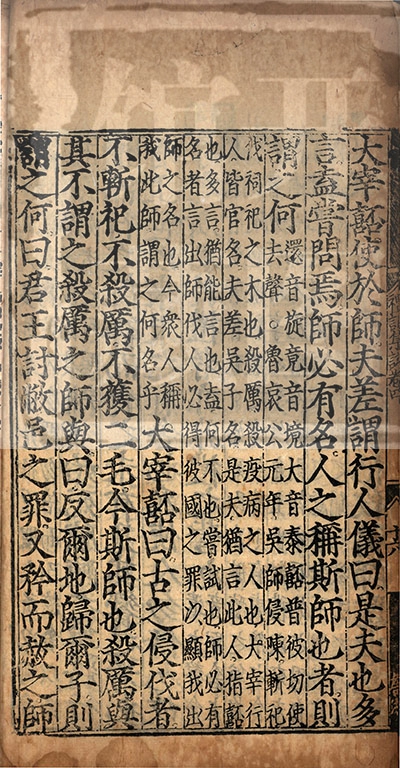 大宰嚭使於師夫差謂行人儀曰是夫也多
言盍嘗問焉師必有名人之稱斯師也者則
謂之何
還音旋竟音境大音泰嚭普彼切使
去聲○魯哀公元年吳師侵陳斬祀
伐祠祀之木也殺厲殺疫病之人也大宰行
人皆官名夫差吳子名是夫猶言此人指嚭
也多言猶能言也盍何不也嘗試也師必有
名者言出師伐人必得彼國之罪以顯我出
師之名也今衆人稱
我此師謂之何名乎
大宰嚭曰古之侵伐者
不斬祀不殺厲不獲二毛今斯師也殺厲與
其不謂之殺厲之師與曰反爾地歸爾子則
謂之何曰君王討敝邑之罪又矜而赦之師